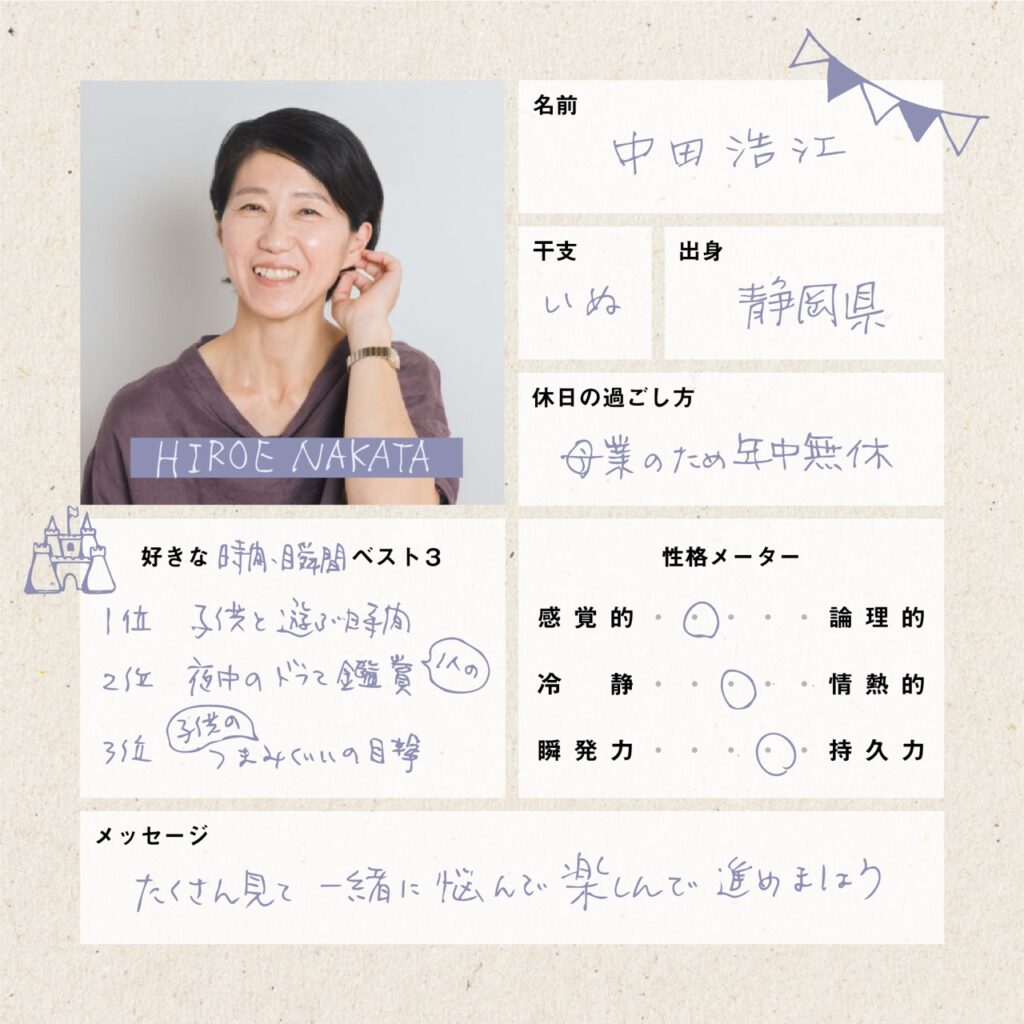 名前
中田浩江
干支
いぬ
出身
静岡県
休日の過ごし方
母業のため年中無休
HIROE NAKATA
好きな時間、瞬間ベスト3
1位 子供と遊ぶ時間
2位 夜中のドラマ鑑賞 1人の
3位 子供のつまみぐいの目撃
性格メーター
感覚的 論理的
冷静 情熱的
瞬発力 持久力
メッセージ
たくさん見て一緒に悩んで楽しんで進めましょう